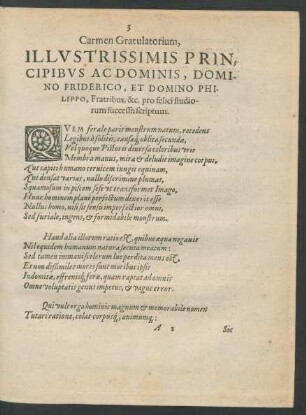 3
Carmen Gratulatorium,
ILLVSTRISSIMIS PRIN,
CIPIBVS AC DOMINIS, DOMI-
NO FRIDERICO, ET DOMINO PHI-
LIPPO, Fratribus, &c. pro felici studio-
rum successu scriptum.
QVEM ferale parit monstrum natura, recedens
Legibus à solitis, causaq; oblita secunda,
Vel quoque Pictoris diuersa coloribus
Membra manus, mira & deludit imagine corpus,
Aut capiti humano ceruicem iungit equinam,
Aut densat varias, nullo discrimine plumas,
Squamosum in piscem sese vt transformet Imago,
Hunc hominem planè perfectum dixerit esse
Nullus homo, nullus sensu imperfectior omni,
Sed furiale, ingens, & formidabile monstrum.
Haud alia illorum ratio est, quibus æqua negauit
Nil quidem humanum natura secuta meatum:
Sed tamen immani scelerum lue perdita mens est,
Et non dissimiles mores sunt moribus ipsis
Indomitæ, effrenisq; feræ, quam raptat ad omnis
Omne voluptatis genus impetus, & vagus error.
Qui vult ergo hominis magnum & memorabile nomen
Tutari ratione, colat corpusq; animumq;:
A 2
Sic